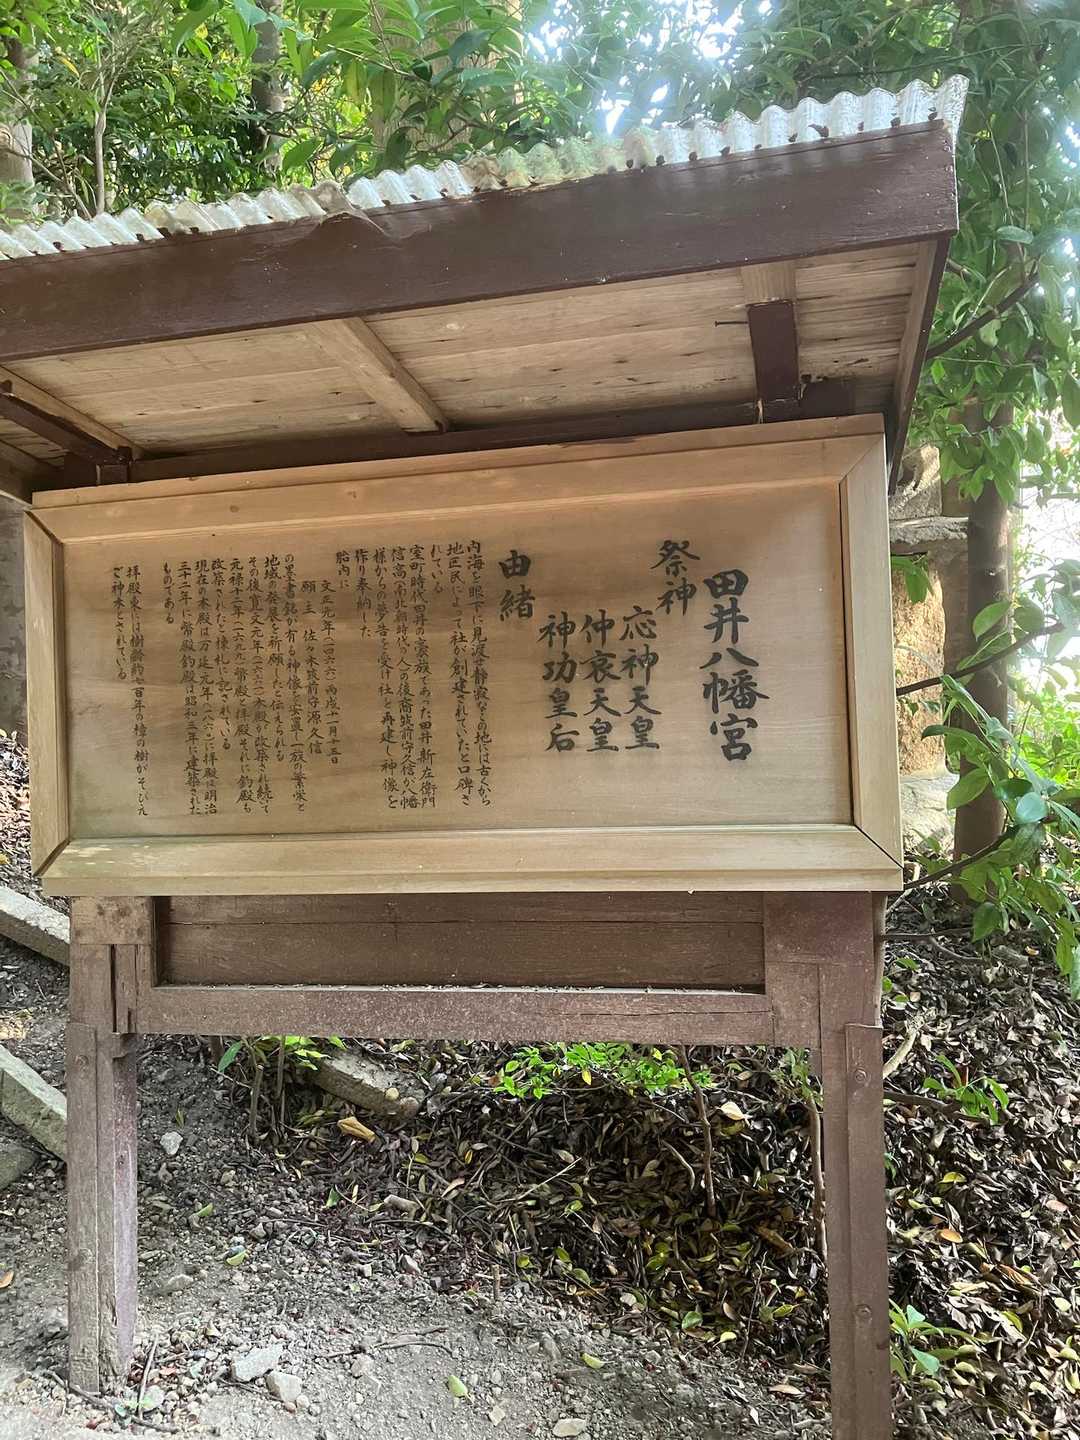 田井八幡宮
祭神
応神天皇
仲哀天皇
神功皇后
由緒
内海を眼下に見渡せ静寂なこの地には古くから
地区民によって社が創建されていたと口碑さ
れている
室町時代田井の豪族であった田井新左衛門
信高（南北朝時代の人）の後裔筑前守久信が八幡
様からの夢告を受け社を再建し神像を
作り奉納した
胎内に
文正元年（一四六六）丙戌十一月十五日
願主 佐々木筑前守源久信
の墨書銘が有る神像を安置し一族の繁栄と
地域の発展を祈願したと伝えられる
その後寛文元年（一六六一）本殿が改築され続て
元禄十二年（一六九九）幣殿と拝殿それに釣殿も
改築されたと棟札に記されている
現在の本殿は万延元年（一八六〇）に拝殿は明治
三十二年に幣殿釣殿は昭和三年に建築された
ものである
拝殿東には樹齢約七百年の樟の樹がそびえ
ご神木とされている